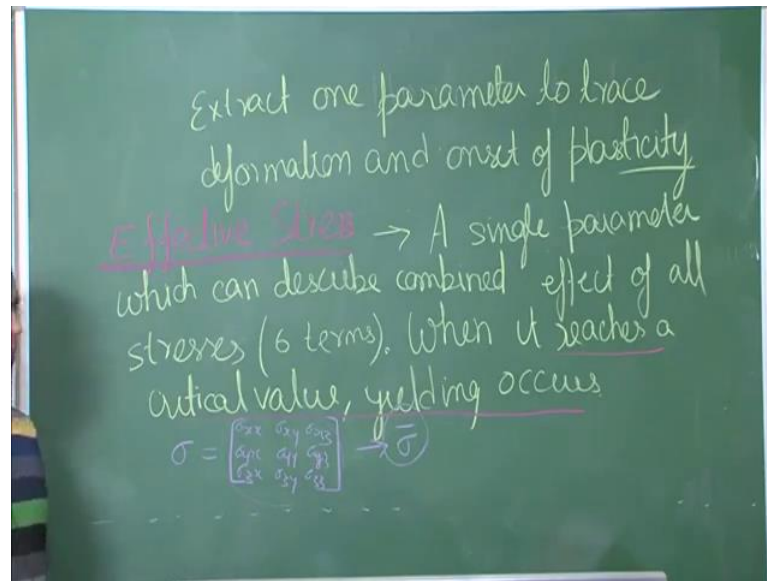 Extract one parameter to trace
deformation and onset of plasticity
Effective Stress → A single parameter
which can describe combined effect of all
stresses (6 terms). When it reaches a
critical value, yielding occurs
σ = [σxx σxy σxz
σyx σyy σyz
σzx σzy σzz] → σ̄